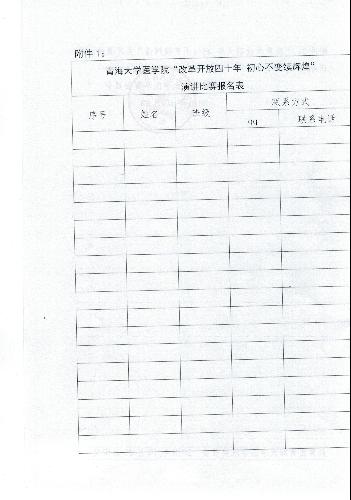 附件 1:
青海大学医学院“改革开放四十年 初心不变续辉煌”
演讲比赛报名表
序号 姓名 班级 联系方式
QQ 联系电话